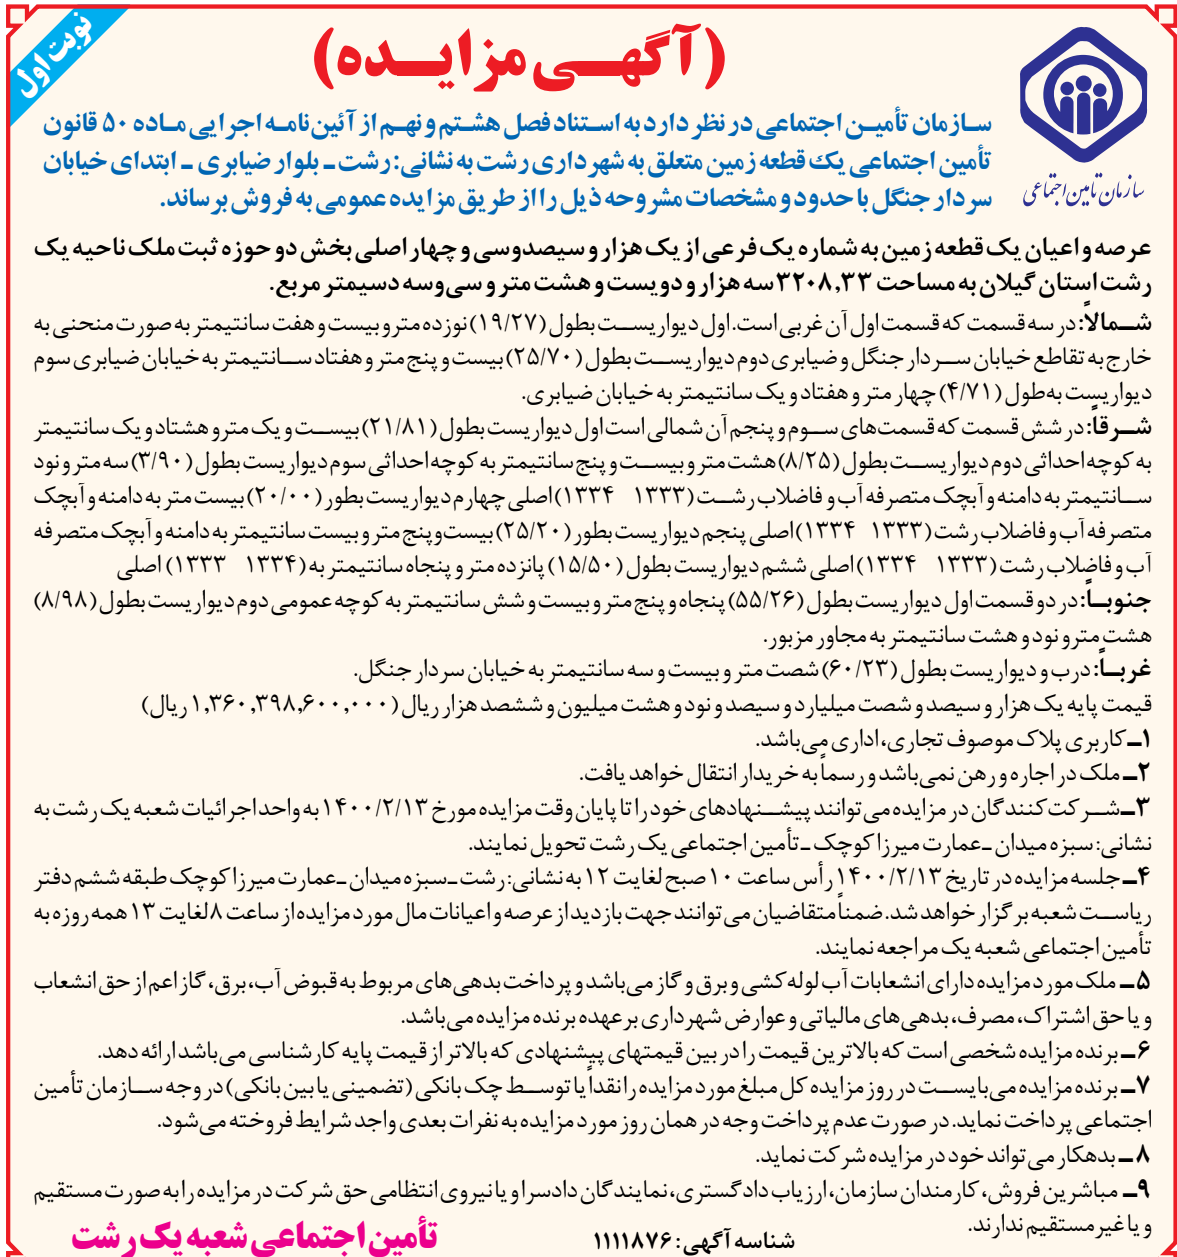 نوبت اول
(آگهی مزایده)
سازمان تأمین اجتماعی در نظر دارد به استناد فصل هشتم و نهم از آئین‌نامه اجرایی ماده ۵۰ قانون
تأمین اجتماعی یک قطعه زمین متعلق به شهرداری رشت به نشانی: رشت ـ بلوار ضیابری ـ ابتدای خیابان
سردار جنگل با حدود و مشخصات مشروحه ذیل را از طریق مزایده عمومی به فروش برساند.
سازمان تامین اجتماعی
عرصه و اعیان یک قطعه زمین به شماره یک فرعی از یک هزار و سیصدوسی و چهار اصلی بخش دو حوزه ثبت ملک ناحیه یک
رشت استان گیلان به مساحت ۳۲۰۸,۳۳ سه هزار و دویست و هشت متر و سی‌وسه دسیمتر مربع.
شمالاً: در سه قسمت که قسمت اول آن غربی است. اول دیواریست بطول (۱۹/۲۷) نوزده متر و بیست و هفت سانتیمتر به صورت منحنی به
خارج به تقاطع خیابان سردار جنگل و ضیابری دوم دیواریست بطول (۲۵/۷۰) بیست و پنج متر و هفتاد سانتیمتر به خیابان ضیابری سوم
دیواریست به‌طول (۴/۷۱) چهار متر و هفتاد و یک سانتیمتر به خیابان ضیابری.
شرقاً: در شش قسمت که قسمت‌های سوم و پنجم آن شمالی است اول دیواریست بطول (۲۱/۸۱) بیست و یک متر و هشتاد و یک سانتیمتر
به کوچه احداثی دوم دیواریست بطول (۸/۲۵) هشت متر و بیست و پنج سانتیمتر به کوچه احداثی سوم دیواریست بطول (۳/۹۰) سه متر و نود
سانتیمتر به دامنه و آبچک متصرفه آب و فاضلاب رشت (۱۳۳۳ ۱۳۳۴) اصلی چهارم دیواریست بطور (۲۰/۰۰) بیست متر به دامنه و آبچک
متصرفه آب و فاضلاب رشت (۱۳۳۳ ۱۳۳۴) اصلی پنجم دیواریست بطور (۲۵/۲۰) بیست‌وپنج متر و بیست سانتیمتر به دامنه و آبچک متصرفه
آب و فاضلاب رشت (۱۳۳۳ ۱۳۳۴) اصلی ششم دیواریست بطول (۱۵/۵۰) پانزده متر و پنجاه سانتیمتر به (۱۳۳۴ ۱۳۳۳) اصلی
جنوباً: در دو قسمت اول دیواریست بطول (۵۵/۲۶) پنجاه و پنج متر و بیست و شش سانتیمتر به کوچه عمومی دوم دیواریست بطول (۸/۹۸)
هشت متر و نود و هشت سانتیمتر به مجاور مزبور.
غرباً: درب و دیواریست بطول (۶۰/۲۳) شصت متر و بیست و سه سانتیمتر به خیابان سردار جنگل.
قیمت پایه یک هزار و سیصد و شصت میلیارد و سیصد و نود و هشت میلیون و ششصد هزار ریال (۱,۳۶۰,۳۹۸,۶۰۰,۰۰۰ ریال)
۱ـ کاربری پلاک موصوف تجاری، اداری می‌باشد.
۲ـ ملک در اجاره و رهن نمی‌باشد و رسماً به خریدار انتقال خواهد یافت.
۳ـ شرکت کنندگان در مزایده می‌توانند پیشنهادهای خود را تا پایان وقت مزایده مورخ ۱۴۰۰/۲/۱۳ به واحد اجرائیات شعبه یک رشت به
نشانی: سبزه میدان ـ عمارت میرزا کوچک ـ تأمین اجتماعی یک رشت تحویل نمایند.
۴ـ جلسه مزایده در تاریخ ۱۴۰۰/۲/۱۳ رأس ساعت ۱۰ صبح لغایت ۱۲ به نشانی: رشت ـ سبزه میدان ـ عمارت میرزا کوچک طبقه ششم دفتر
ریاست شعبه برگزار خواهد شد. ضمناً متقاضیان می‌توانند جهت بازدید از عرصه و اعیانات مال مورد مزایده از ساعت ۸ لغایت ۱۳ همه روزه به
تأمین اجتماعی شعبه یک مراجعه نمایند.
۵ـ ملک مورد مزایده دارای انشعابات آب لوله کشی و برق و گاز می‌باشد و پرداخت بدهی‌های مربوط به قبوض آب، برق، گاز اعم از حق انشعاب
و یا حق اشتراک، مصرف، بدهی‌های مالیاتی و عوارض شهرداری بر عهده برنده مزایده می‌باشد.
۶ـ برنده مزایده شخصی است که بالاترین قیمت را در بین قیمتهای پیشنهادی که بالاتر از قیمت پایه کارشناسی می‌باشد ارائه دهد.
۷ـ برنده مزایده می‌بایست در روز مزایده کل مبلغ مورد مزایده را نقداً یا توسط چک بانکی (تضمینی یا بین بانکی) در وجه سازمان تأمین
اجتماعی پرداخت نماید. در صورت عدم پرداخت وجه در همان روز مورد مزایده به نفرات بعدی واجد شرایط فروخته می‌شود.
۸ـ بدهکار می‌تواند خود در مزایده شرکت نماید.
۹ـ مباشرین فروش، کارمندان سازمان، ارزیاب دادگستری، نمایندگان دادسرا و یا نیروی انتظامی حق شرکت در مزایده را به صورت مستقیم
و یا غیر مستقیم ندارند.
شناسه آگهی: ۱۱۱۱۸۷۶
تأمین اجتماعی شعبه یک رشت